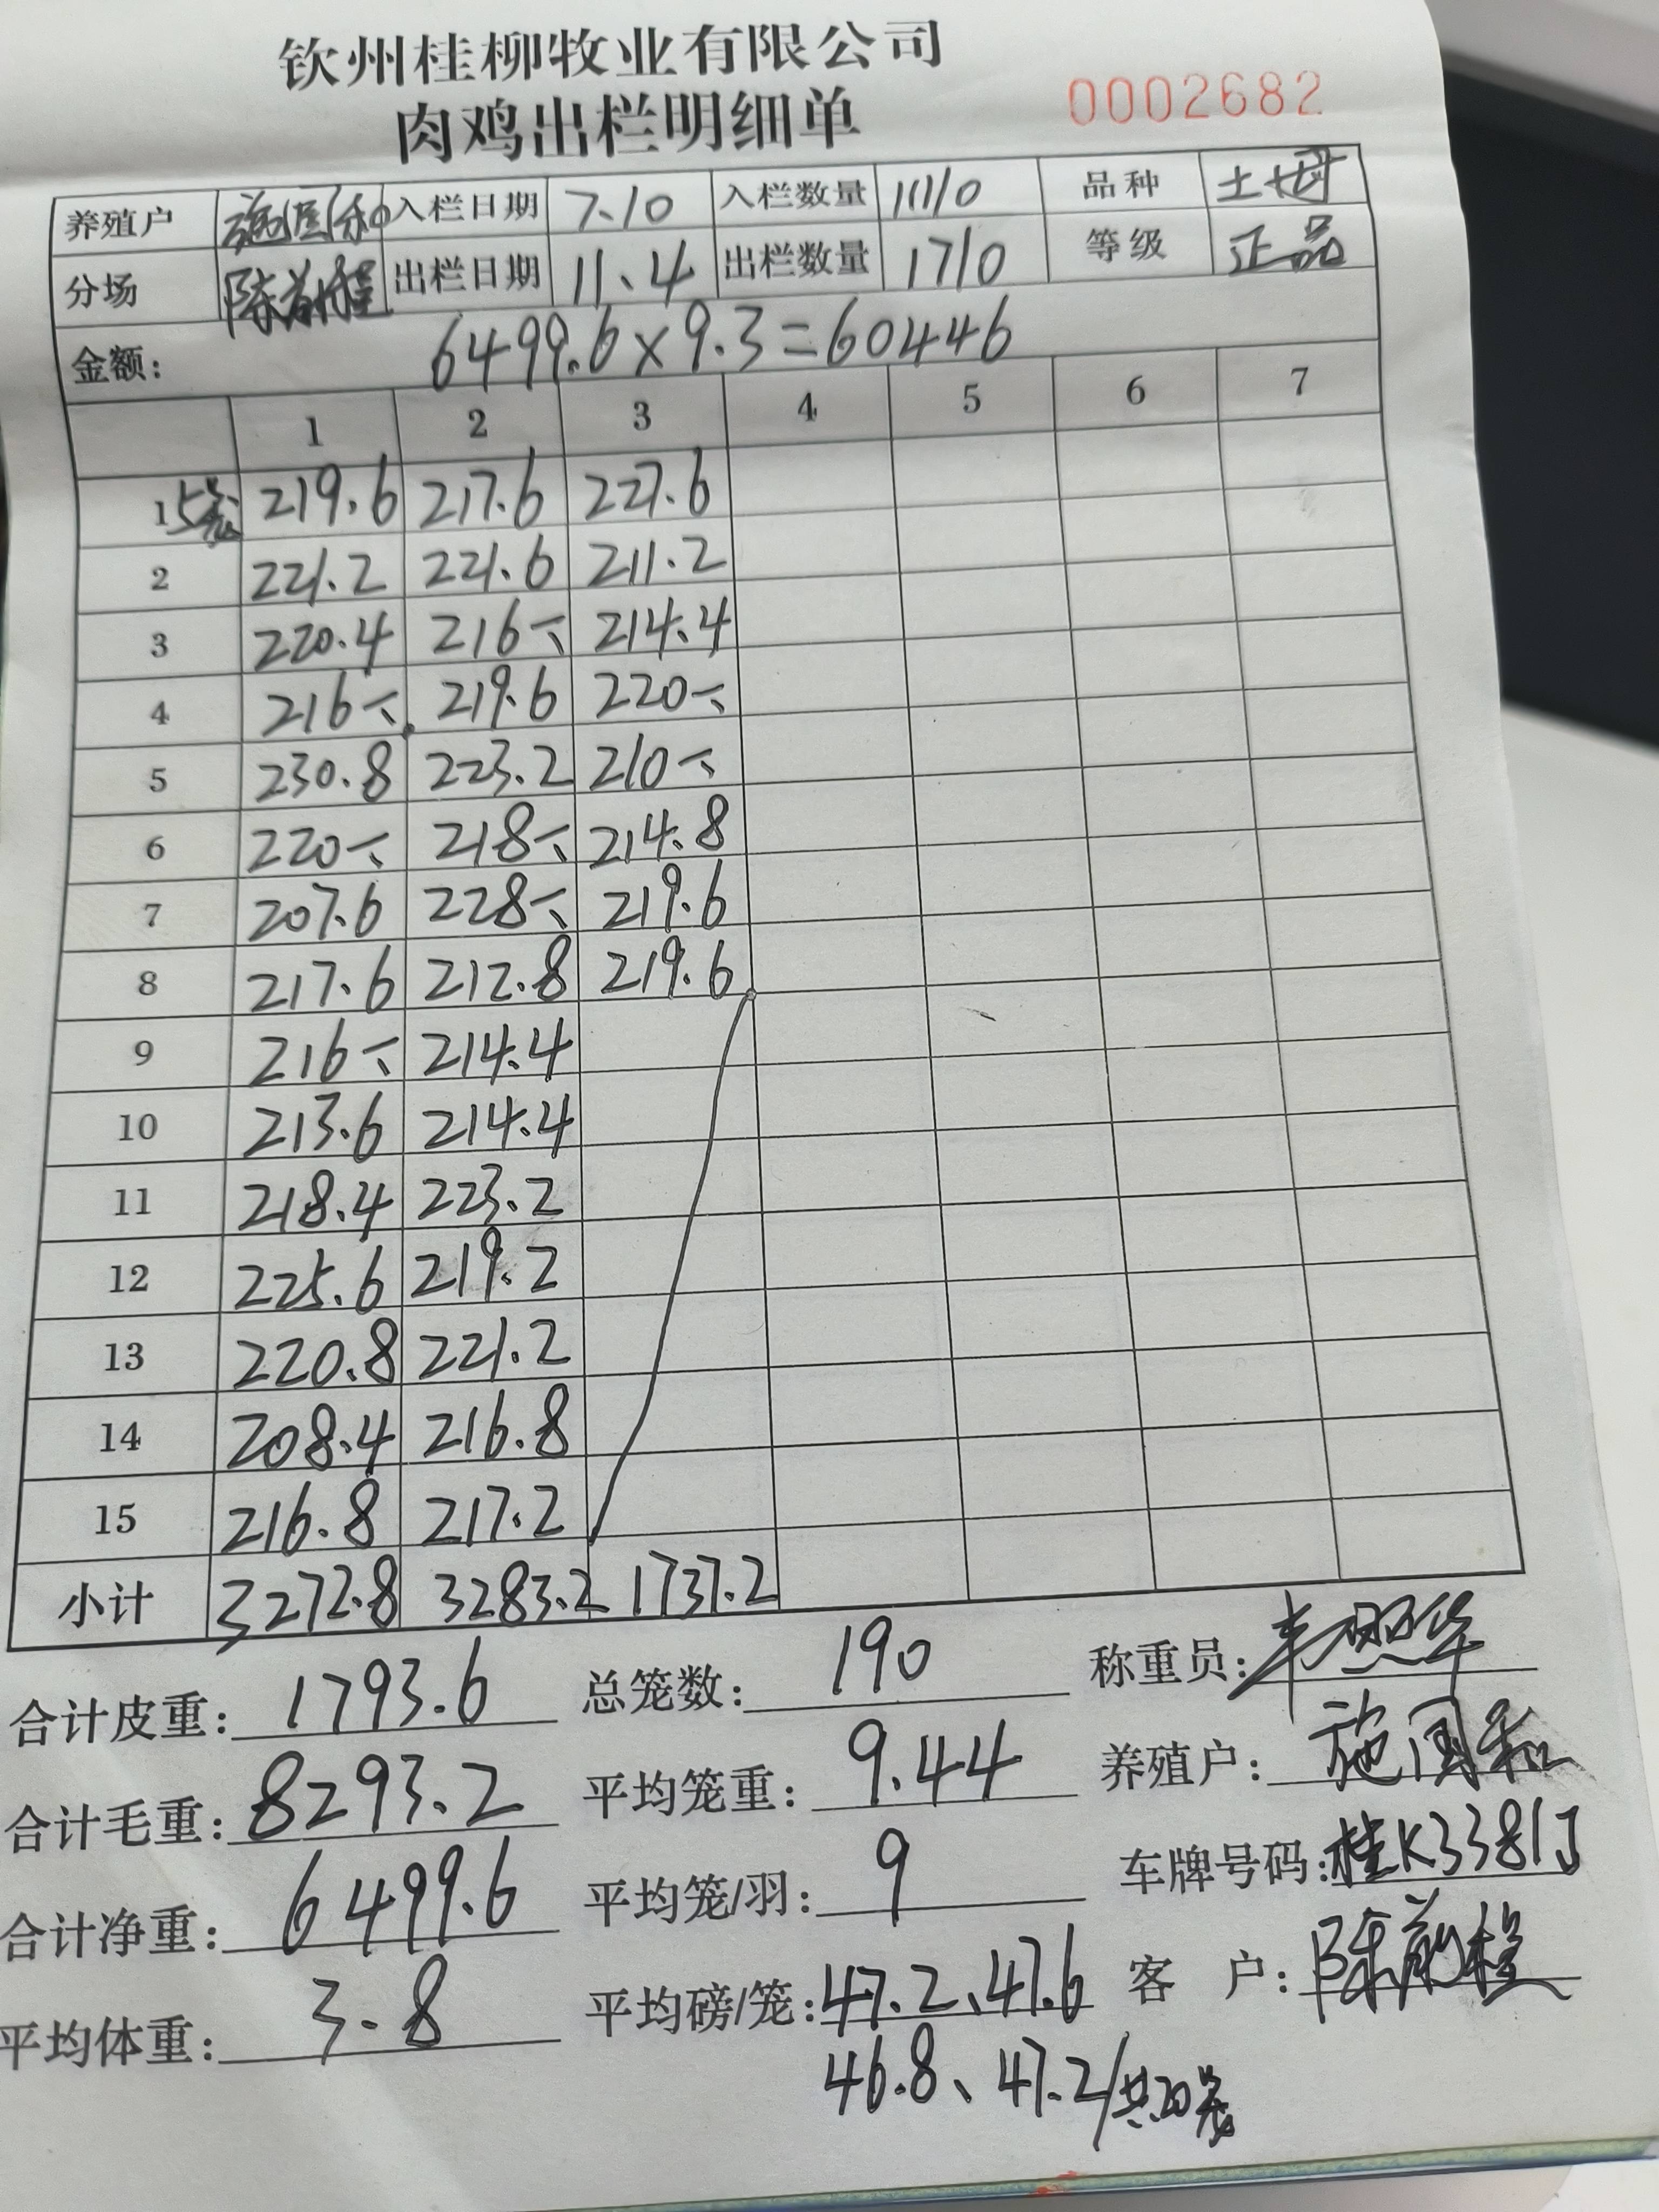 钦州桂柳牧业有限公司
肉鸡出栏明细单 0002682
养殖户 施国和 入栏日期 7.10 入栏数量 11110 品种 土
分场 陈前程 出栏日期 11.4 出栏数量 1710 等级 正品
金额: 6499.6×9.3=60446
1 2 3 4 5 6 7
1 5笼 219.6 217.6 227.6
2 221.2 221.6 211.2
3 220.4 216 214.4
4 216 219.6 220
5 230.8 223.2 210
6 220 218 214.8
7 207.6 228 219.6
8 217.6 212.8 219.6
9 216 214.4
10 213.6 214.4
11 218.4 223.2
12 225.6 219.2
13 220.8 221.2
14 208.4 216.8
15 216.8 217.2
小计 3272.8 3283.2 1737.2
合计皮重: 1793.6 总笼数: 190 称重员:
合计毛重: 8293.2 平均笼重: 9.44 养殖户: 施国和
合计净重: 6499.6 平均笼/羽: 9 车牌号码: 桂K3381J
平均体重: 3.8 平均磅/笼: 47.2、47.6 客 户: 陈前程
46.8、47.2/共20笼